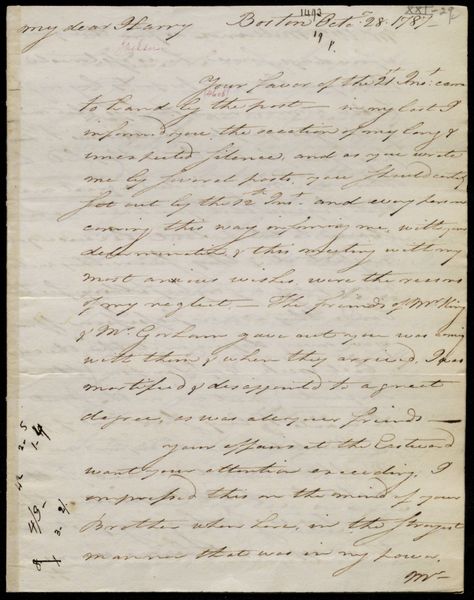 XXI-29
1493
19 p.
my dear Harry Boston Octr. 28. 1787-
Your favor of the 21st Inst. came
to hand by the post - in my last I
informed you the reason of my long &
unexpected silence, and as you wrote
me by several posts, you should certainly
set out by the 12th Inst. and every person
coming this way informing me, with your
determination, & this meeting with my
most anxious wishes, were the reasons
of my neglect - The friends of Mr. King
& Mr. Gorham gave out you was coming
with them & when they arrived, I was
mortified & disappointed to a great
degree, as was all your friends -
your affairs at the Eastward
want your attention exceedingly. I
impressed this on the mind of your
Brother when here, in the strongest
manner that was in my power.
Mr-